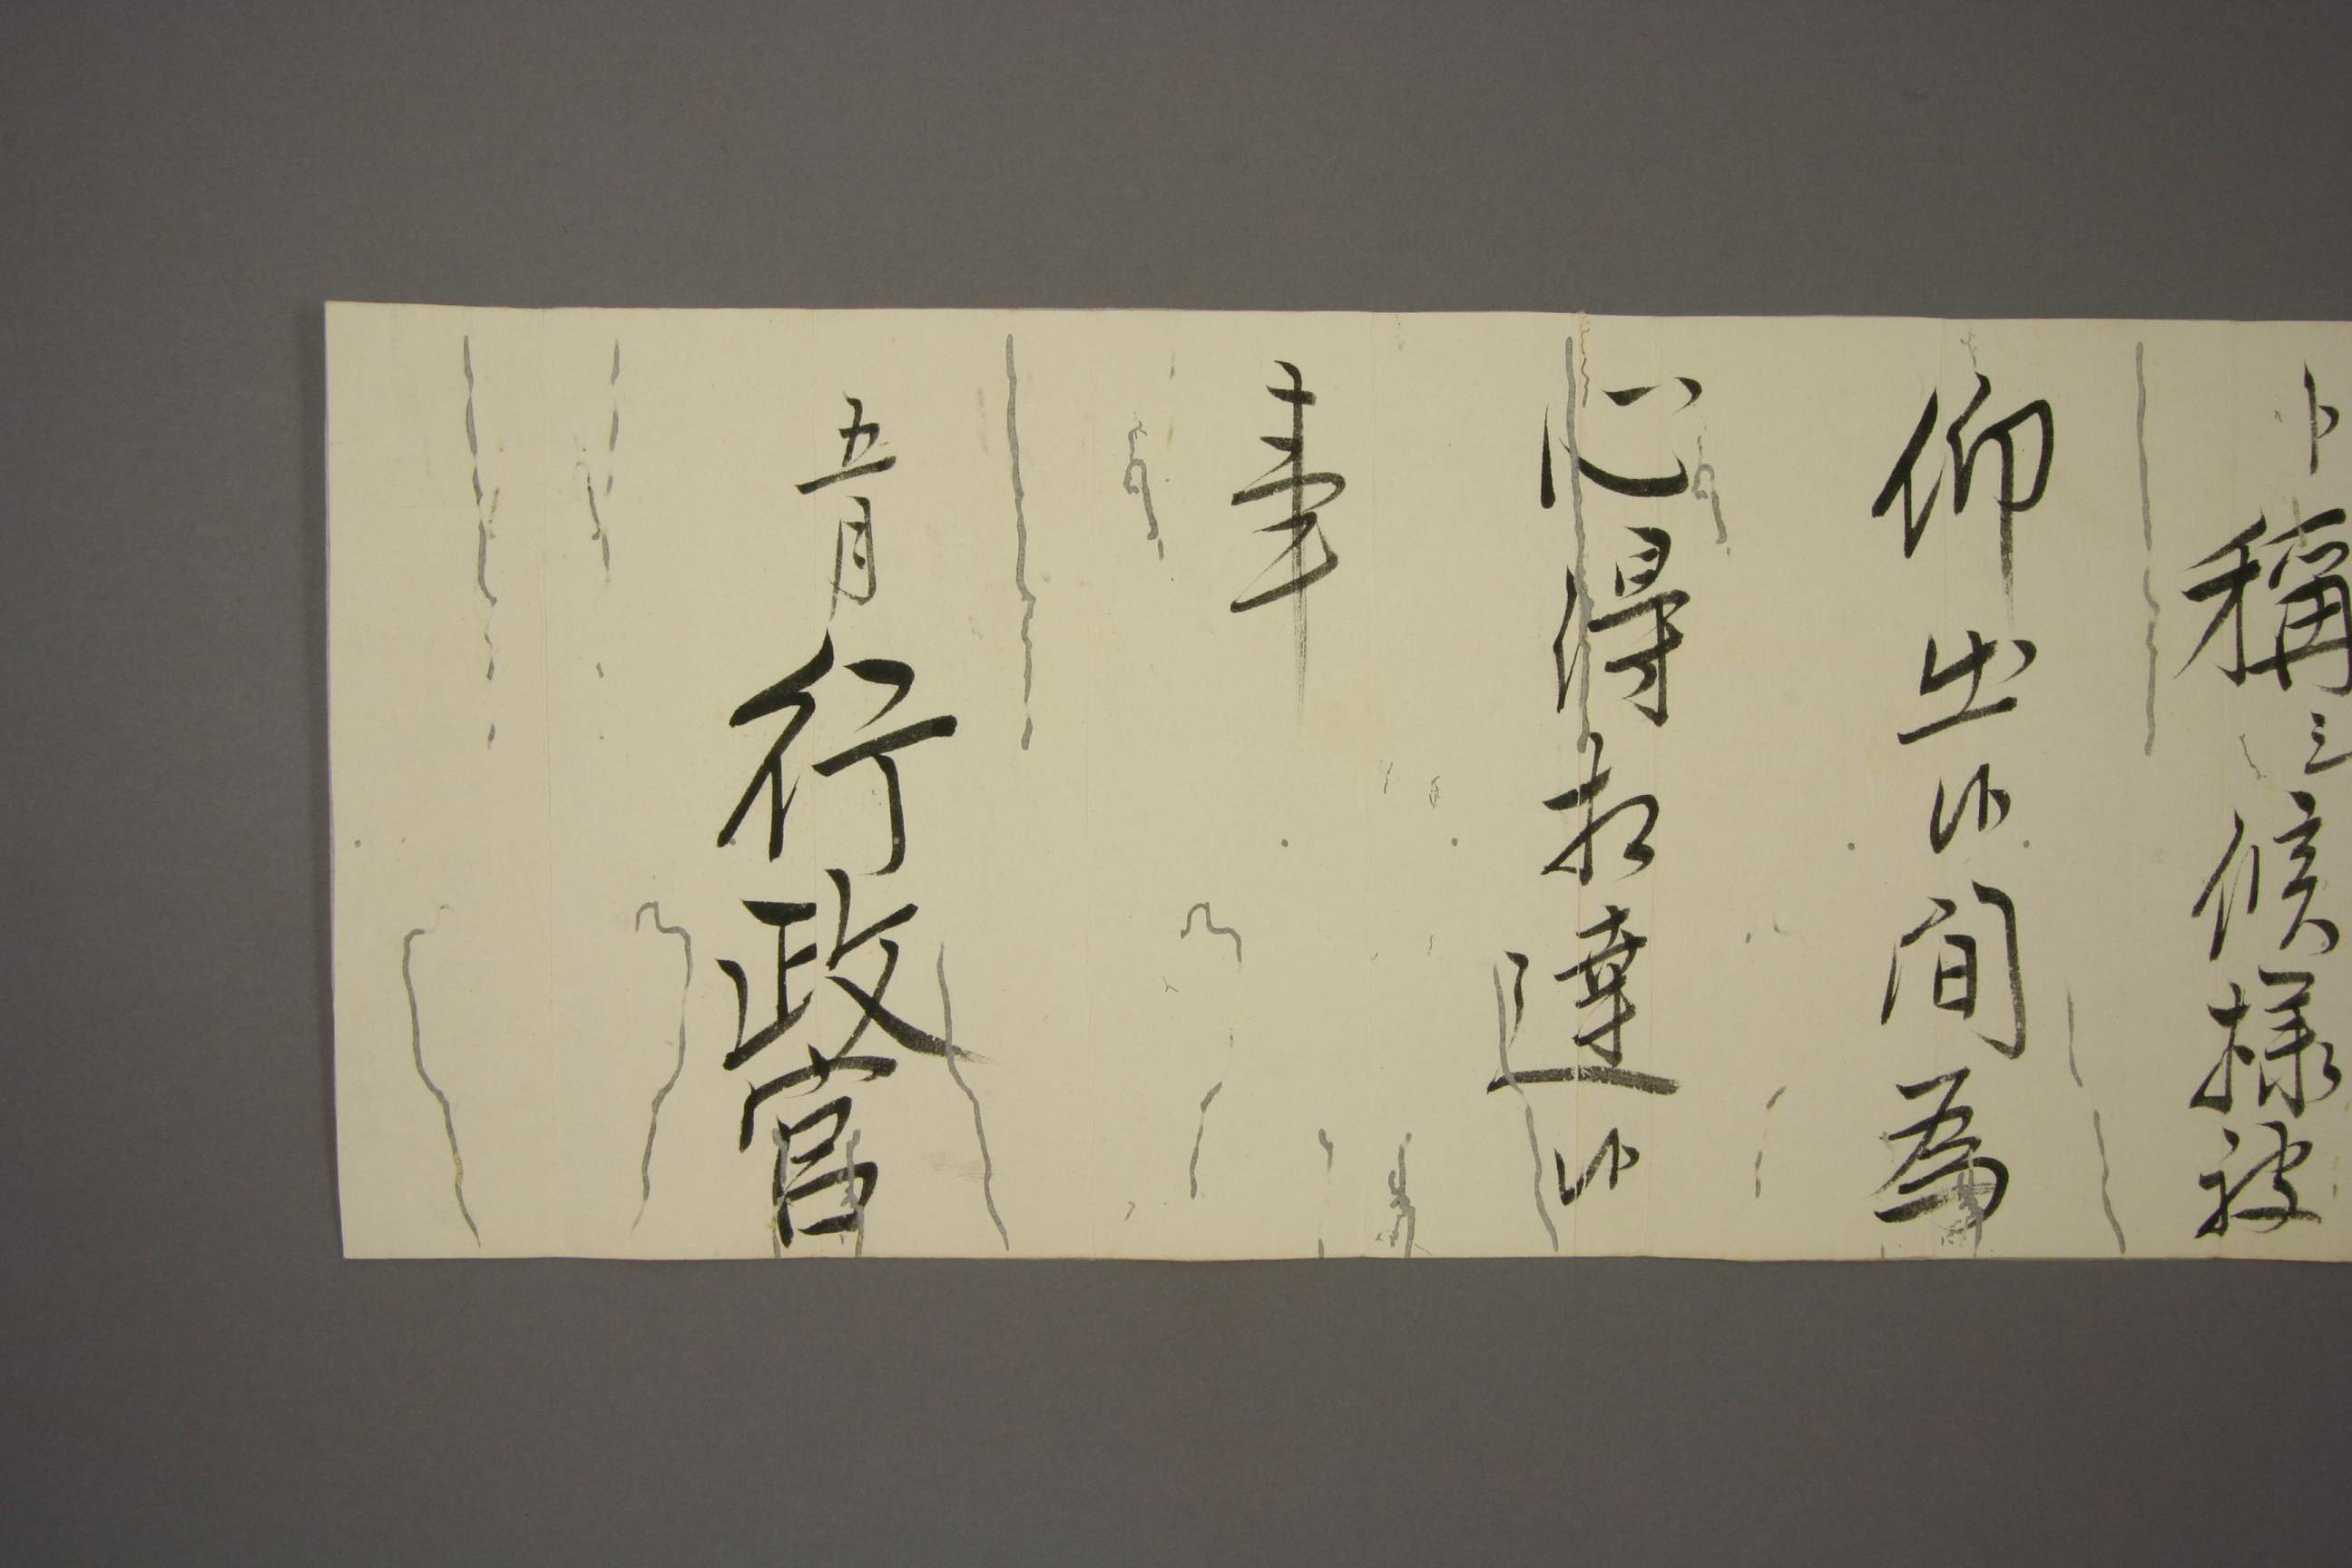 稱候様被
仰出候間為
心得相達候
事
五月
行政官